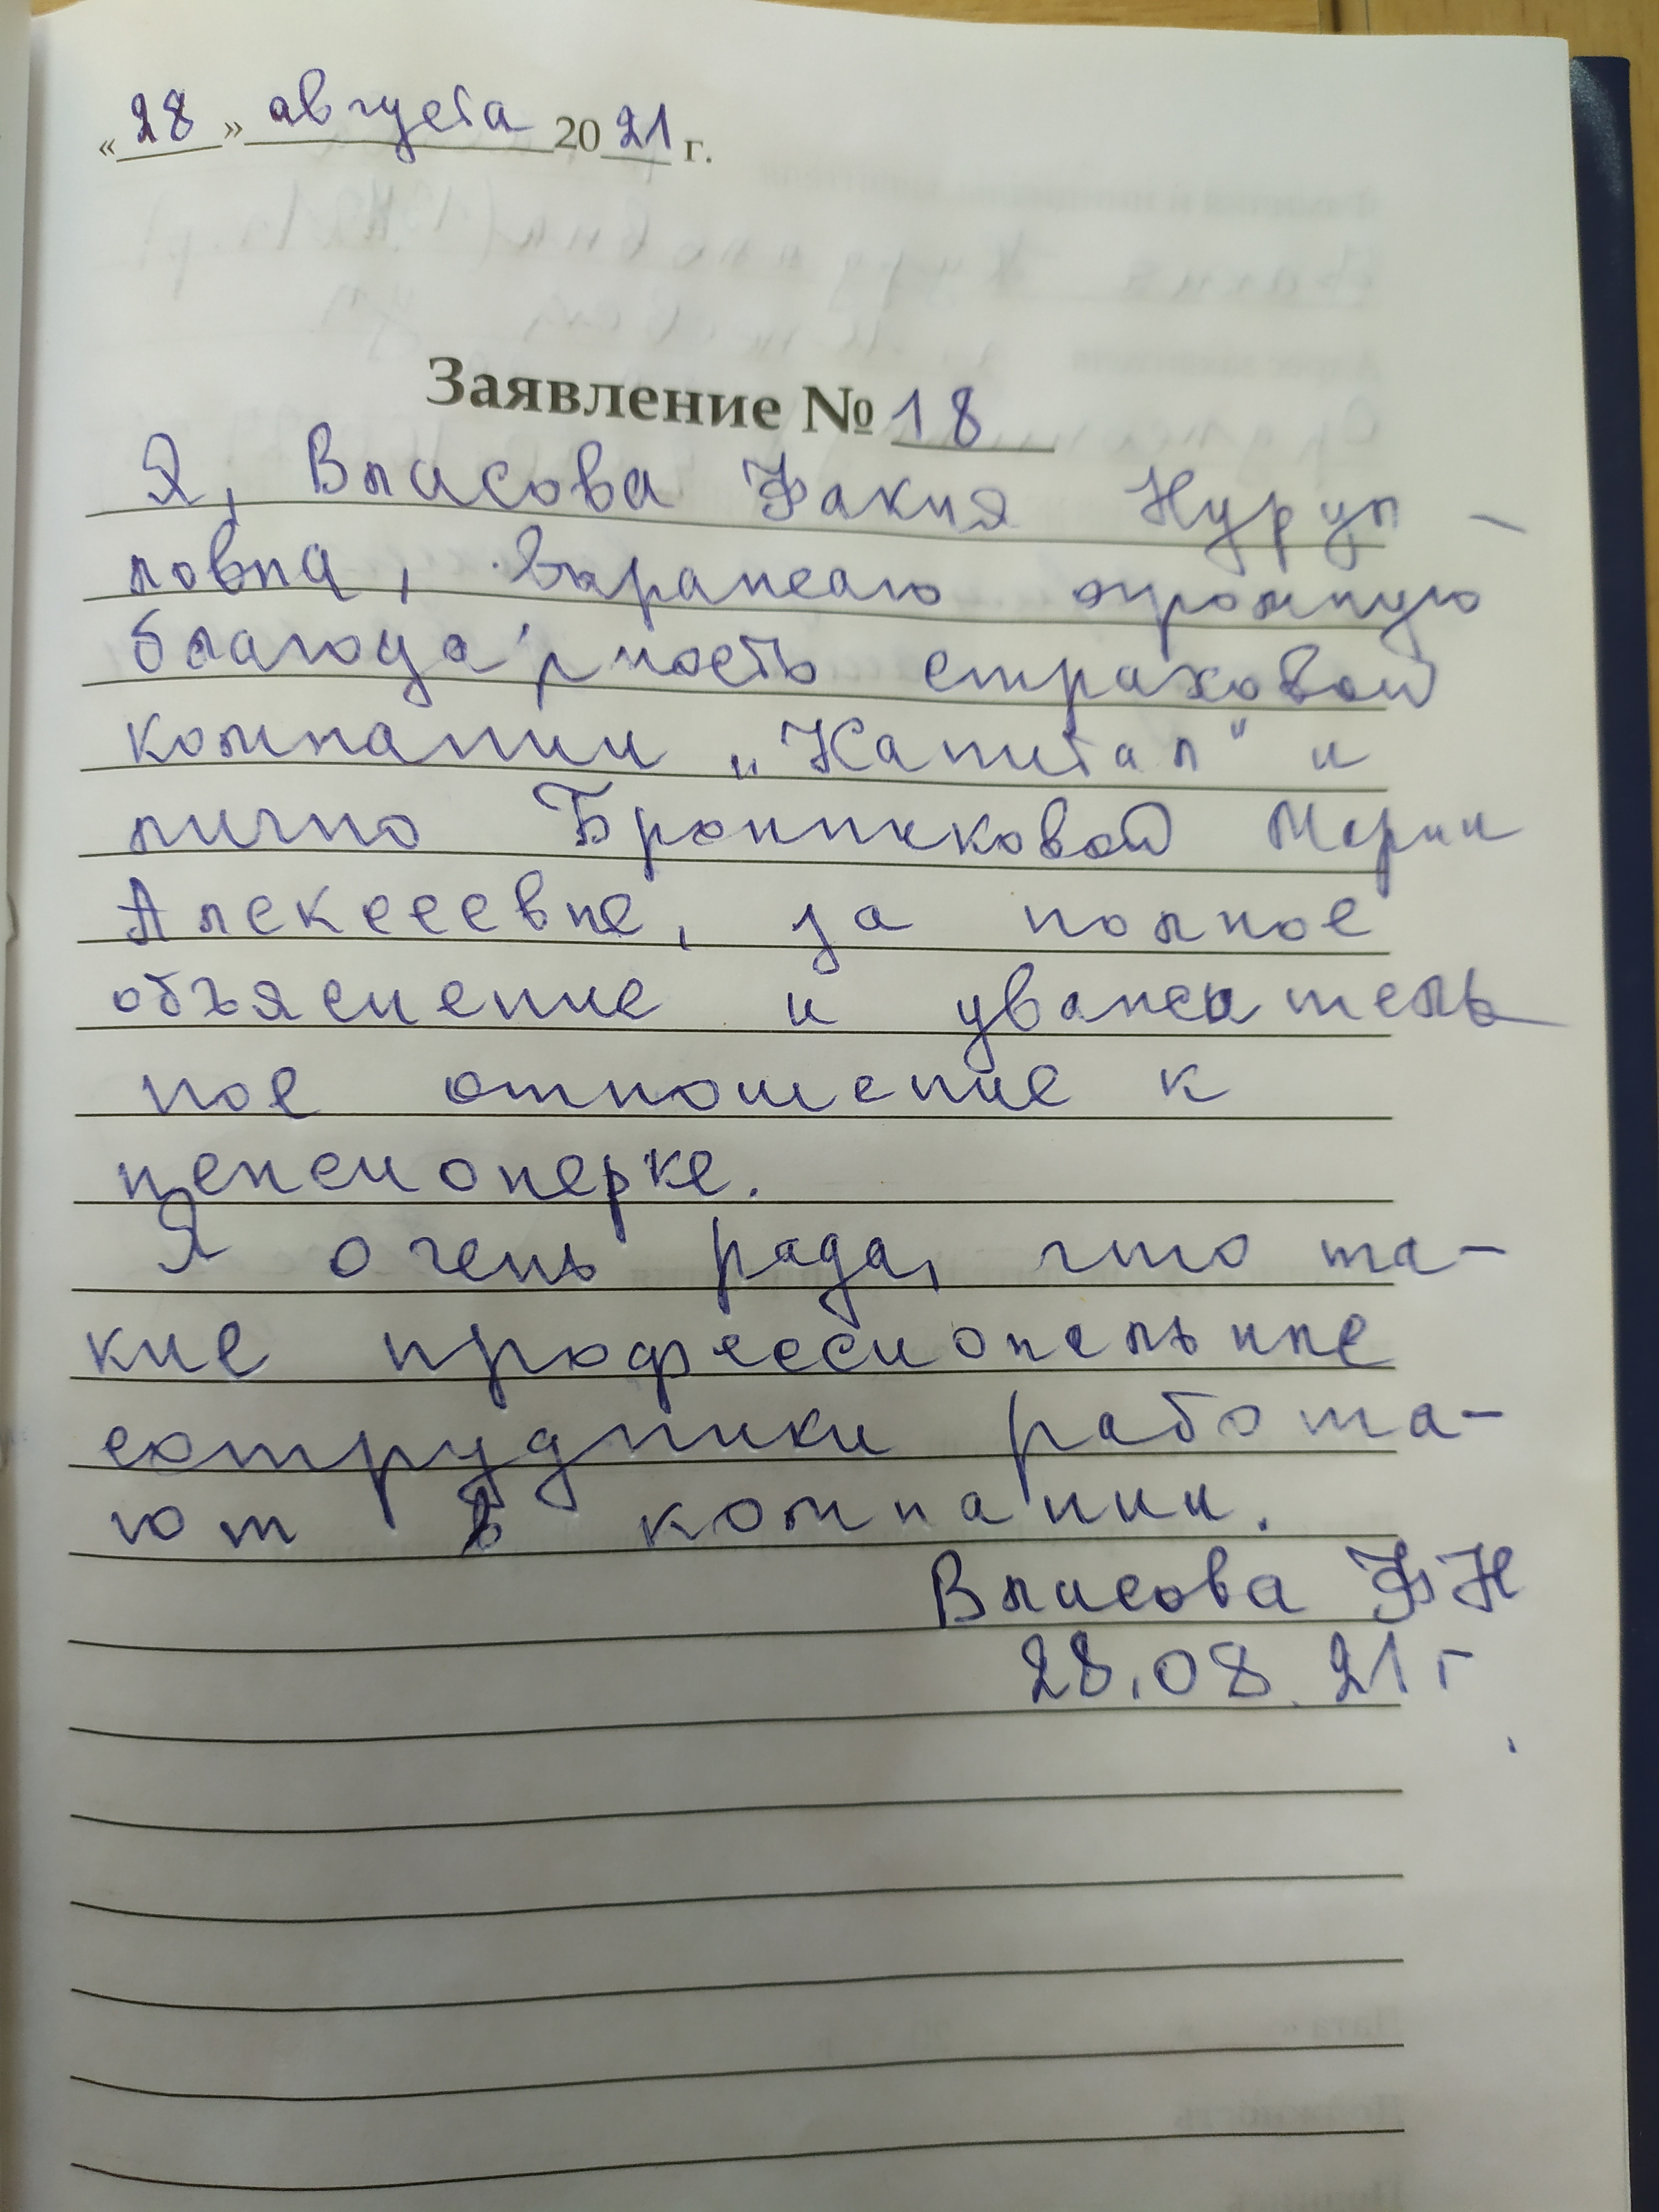 «28» августа 2021 г.
Заявление № 18
Я, Власова Факия Нурул-
ловна, выражаю огромную
благодарность страховой
компании „Капитал" и
лично Бронниковой Марии
Алексеевне, за полное
объяснение и уважитель
ное отношение к
пенсионерке.
Я очень рада, что та-
кие профессиональные
сотрудники работа-
ют в компании.
Власова ФН
28.08.21г